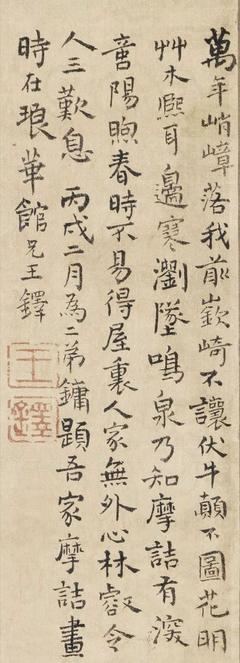 萬年峭嶂落我前嶔崎不讓伏牛顛不圖花明
艸木熈耳邊寒瀏墜鳴泉乃知摩詰有深
意陽煦春時不易得屋裏人家無外心林壑令
人三歎息 丙戌二月為二弟鏞題吾家摩詰畫
時在琅華館兄王鐸
王鐸